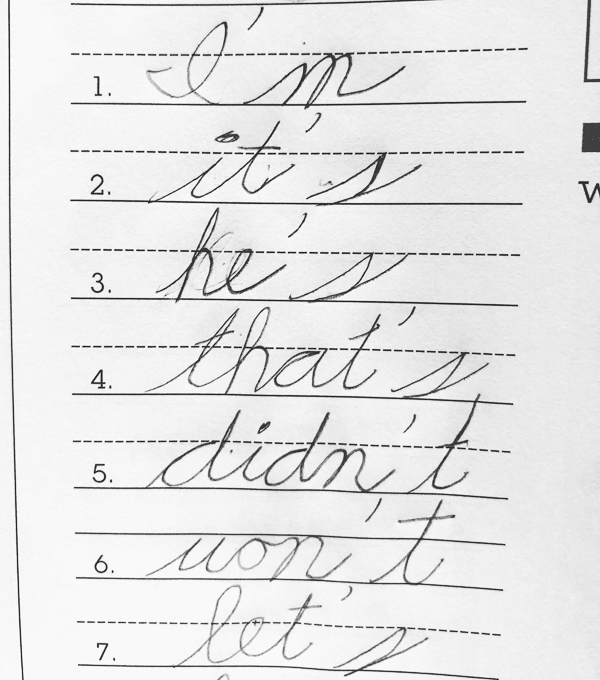 1. I'm
2. it's
3. he's
4. that's
5. didn't
6. won't
7. let's